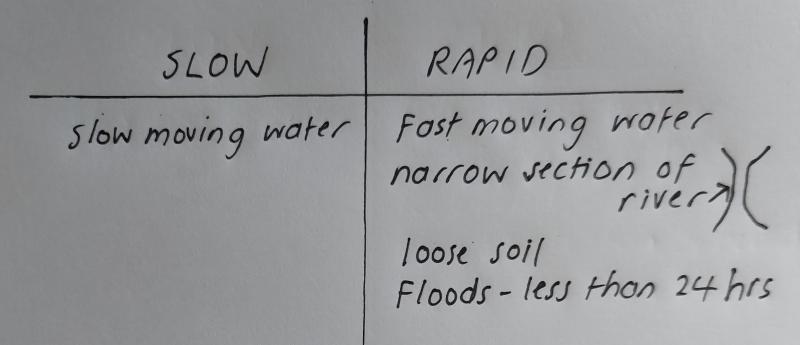 SLOW RAPID
slow moving water Fast moving water
narrow section of
river
loose soil
Floods - less than 24 hrs